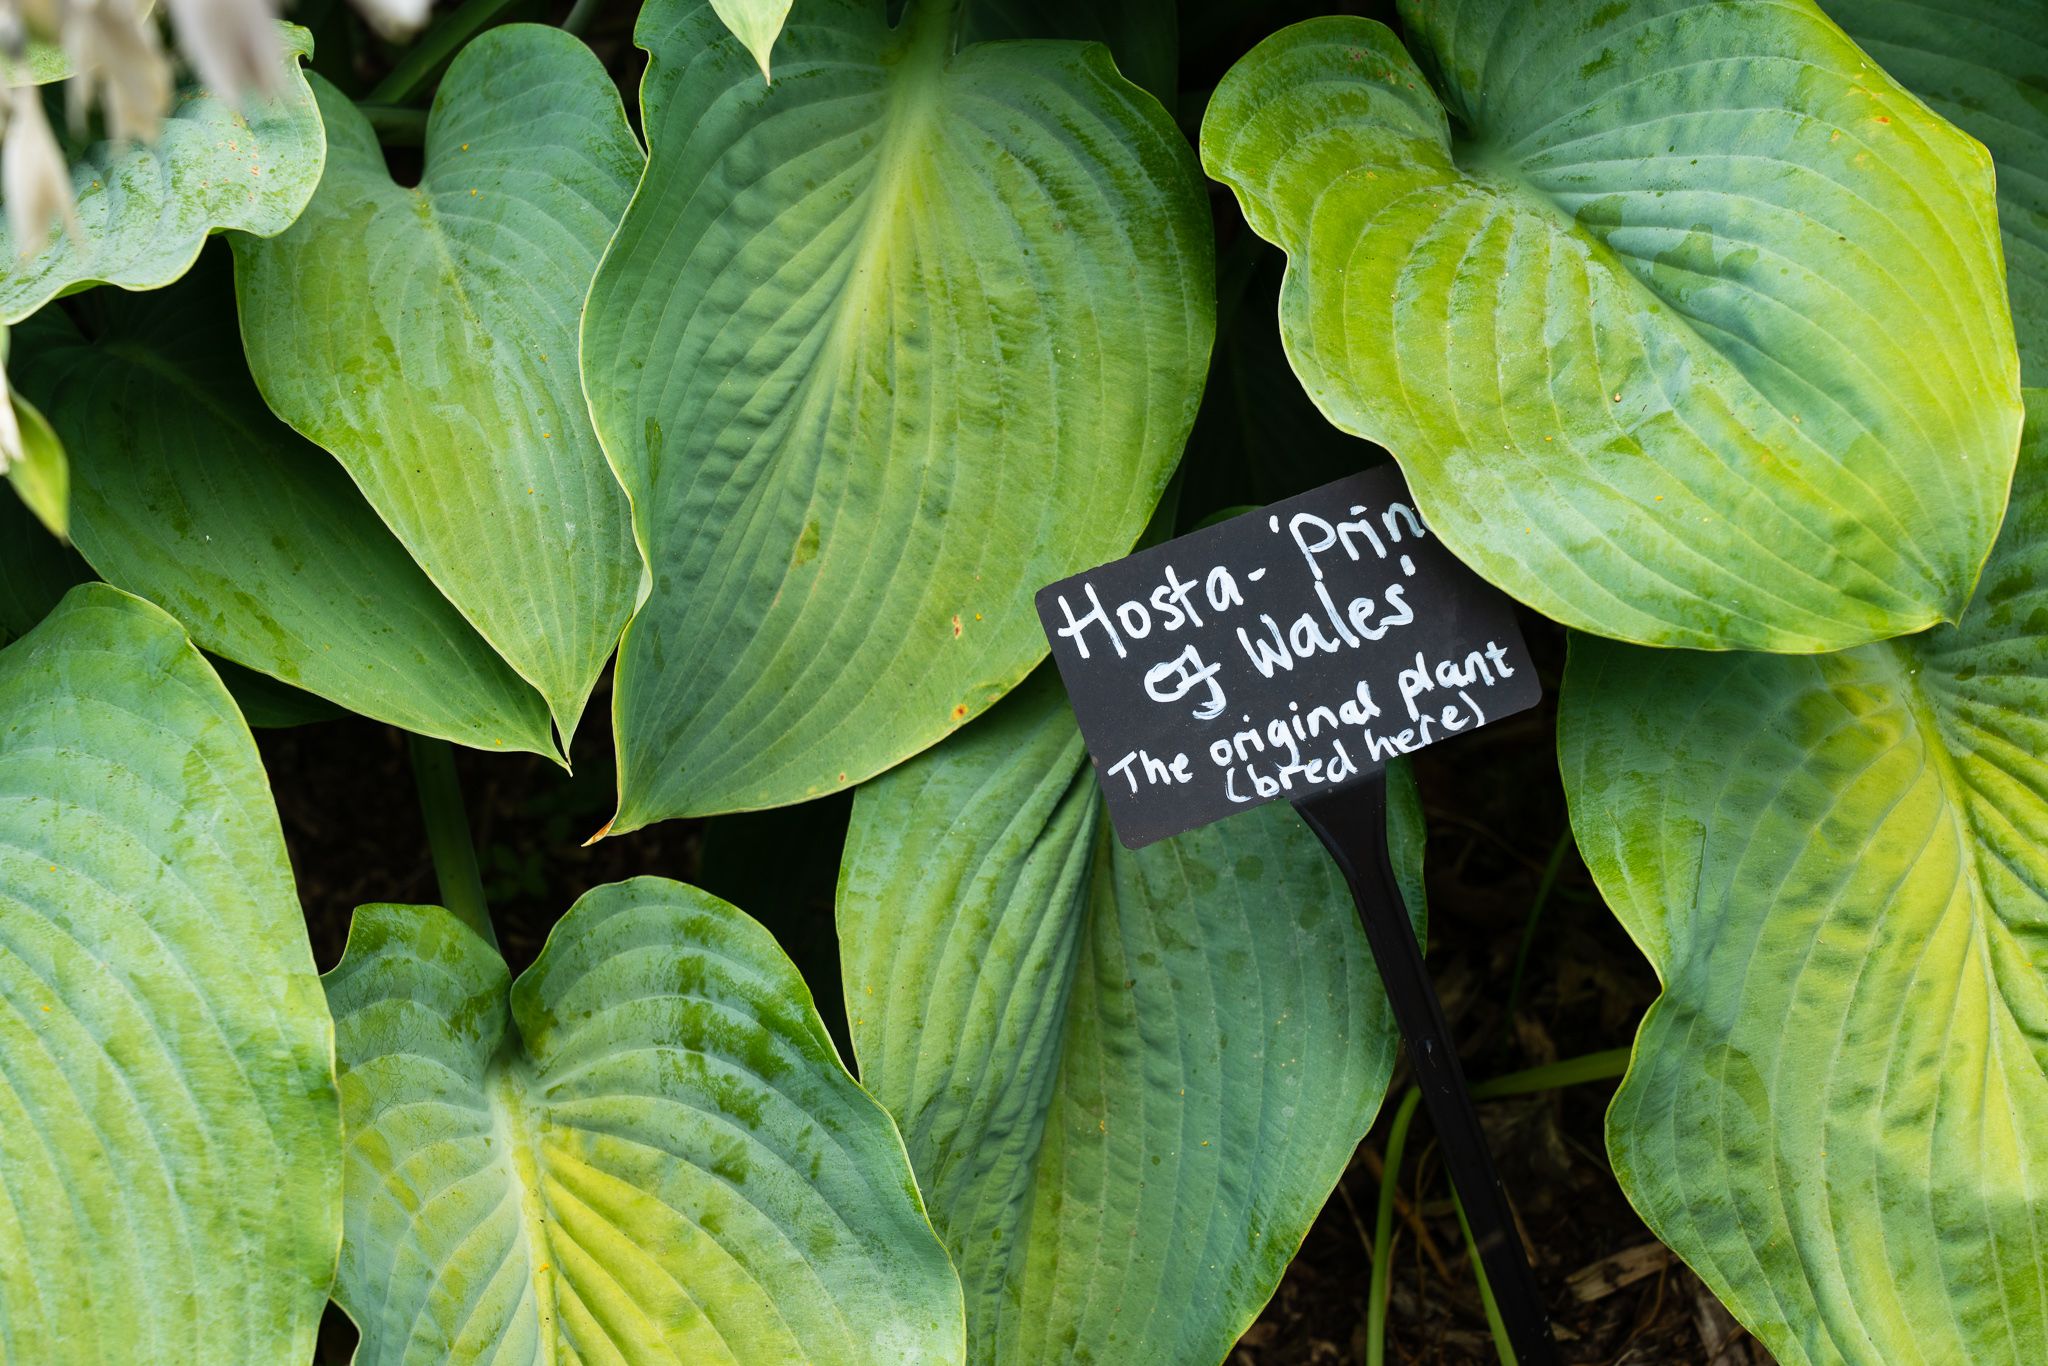 Hosta - 'Prin
of Wales'
The original plant
(bred here)